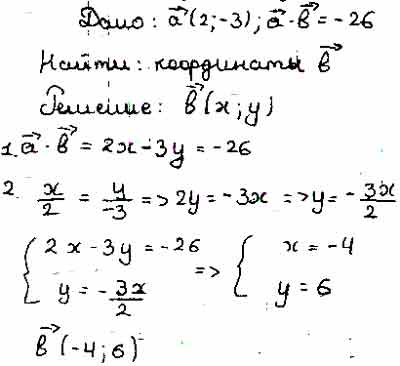 Дано: a⃗(2;-3); a⃗·b⃗ = -26
Найти: координаты b⃗
Решение: b⃗(x;y)
1. a⃗·b⃗ = 2x-3y = -26
2. x/2 = y/-3 => 2y = -3x => y = -3x/2
{ 2x-3y = -26
y = -3x/2 => { x = -4
y = 6
b⃗(-4;6)